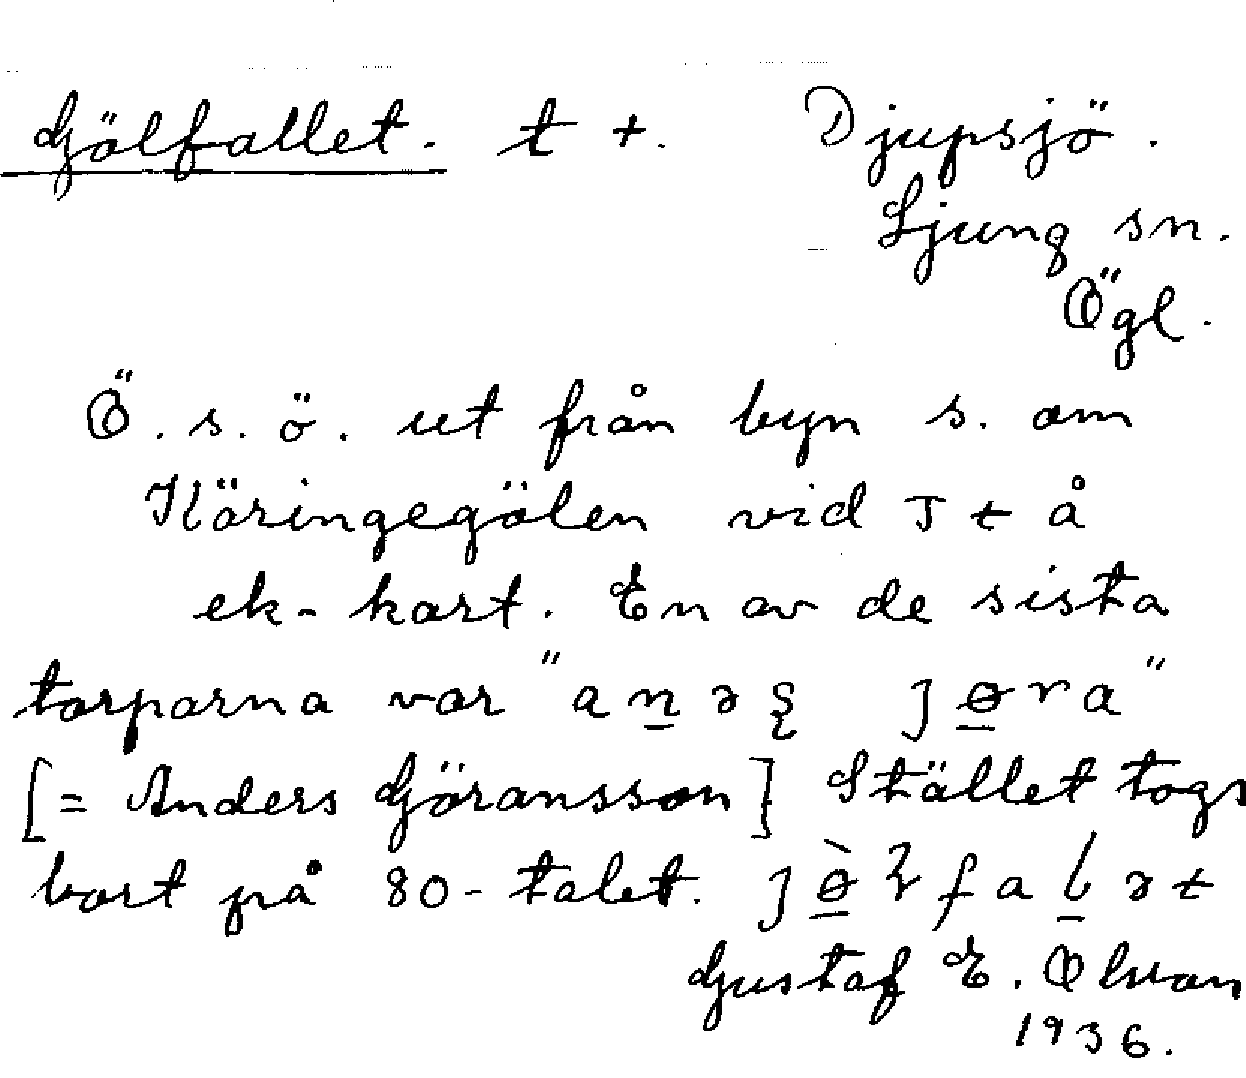 Gölfallet. t +. Djupsjö.
Ljung sn.
Ögl.
Ö. s. ö. ut från byn s. om
Käringegölen vid J t å
ek-kart. En av de sista
torparna var "anəʂ jɵra"
[= Anders Göransson] Stället togs
bort på 80-talet. jɵ̀ɽfalət
Gustaf E. Olwan
1936.